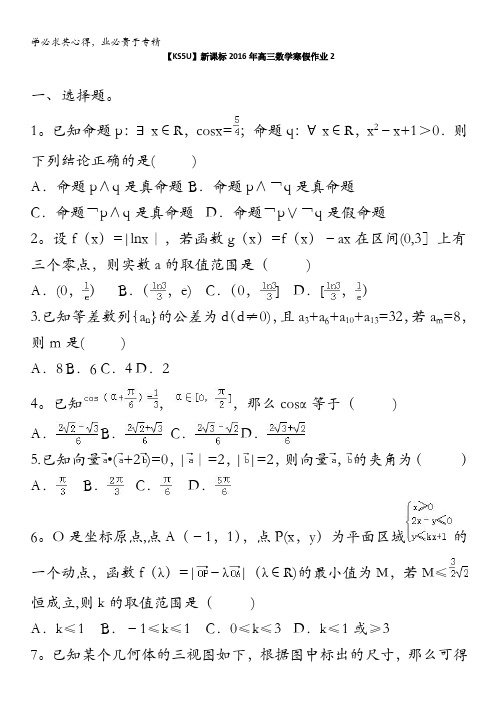 学必求其心得，业必贵于专精
【KS5U】新课标2016年高三数学寒假作业2
一、选择题。
1。已知命题p：∃x∈R，cosx=5/4；命题q：∀x∈R，x²﹣x+1＞0．则
下列结论正确的是(　　)
A．命题p∧q是真命题 B．命题p∧¬q是真命题
C．命题¬p∧q是真命题 D．命题¬p∨¬q是假命题
2。设f（x）=|lnx|，若函数g（x）=f（x）﹣ax在区间(0,3］上有
三个零点，则实数a的取值范围是（　　）
A．(0，1/e） B．（ln3/3，e) C．（0，ln3/3] D．[ln3/3，1/e）
3.已知等差数列{aₙ}的公差为d（d≠0)，且a₃+a₆+a₁₀+a₁₃=32，若aₘ=8，
则m是(　　)
A．8 B．6 C．4 D．2
4。已知cos（α+π/6）=1/3，α∈[0，π/2]，那么cosα等于（　　)
A．(2√2-√3)/6 B．(2√2+√3)/6 C．(2√3-√2)/6 D．(2√3+√2)/6
5.已知向量a⃗•(a⃗+2b⃗)=0，|a⃗|=2，|b⃗|=2，则向量a⃗，b⃗的夹角为（　　）
A．π/3 B．2π/3 C．π/6 D．5π/6
6。O是坐标原点,点A（﹣1，1），点P(x，y）为平面区域{x≥0 2x-y≤0 y≤kx+1的
一个动点，函数f（λ）=|OP⃗﹣λOA⃗|（λ∈R)的最小值为M，若M≤3/2√2
恒成立,则k的取值范围是（　　）
A．k≤1 B．﹣1≤k≤1 C．0≤k≤3 D．k≤1或≥3
7。已知某个几何体的三视图如下，根据图中标出的尺寸，那么可得